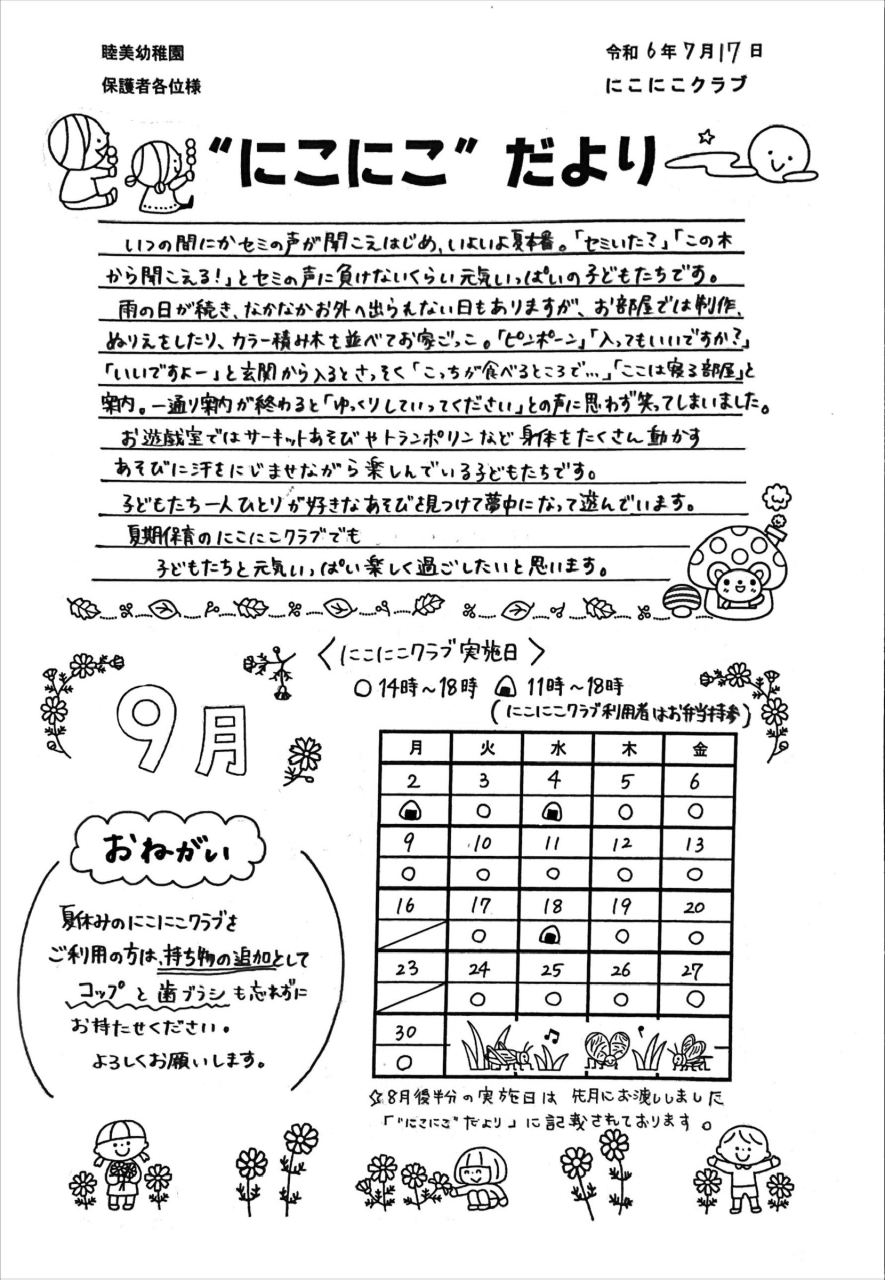 睦美幼稚園
令和6年7月17日
保護者各位様
にこにこクラブ
"にこにこ" だより
いつの間にかセミの声が聞こえはじめ、いよいよ夏本番。「セミいた?」「この木
から聞こえる!」とセミの声に負けないくらい元気いっぱいの子どもたちです。
雨の日が続き、なかなかお外へ出られない日もありますが、お部屋では制作、
ぬりえをしたり、カラー積み木を並べてお家ごっこ。「ピンポーン」「入ってもいいですか?」
「いいですよー」と玄関から入るとさっそく「こっちが食べるところで…」「ここは寝る部屋」と
案内。一通り案内が終わると「ゆっくりしていってください」との声に思わず笑ってしまいました。
お遊戯室ではサーキットあそびやトランポリンなど身体をたくさん動かす
あそびに汗をにじませながら楽しんでいる子どもたちです。
子どもたち一人ひとりが好きなあそびを見つけて夢中になって遊んでいます。
夏期保育のにこにこクラブでも
子どもたちと元気いっぱい楽しく過ごしたいと思います。
〈にこにこクラブ実施日〉
○14時～18時 🍙11時～18時
(にこにこクラブ利用者はお弁当持参)
9月
月 火 水 木 金
2 3 4 5 6
🍙 ○ 🍙 ○ ○
9 10 11 12 13
○ ○ ○ ○ ○
16 17 18 19 20
○ 🍙 ○ ○
23 24 25 26 27
○ ○ ○ ○
30
○
おねがい
夏休みのにこにこクラブを
ご利用の方は、持ち物の追加として
コップと歯ブラシも忘れずに
お持たせください。
よろしくお願いします。
☆8月後半分の実施日は 先月にお渡ししました
「"にこにこ"だより」に記載されております。